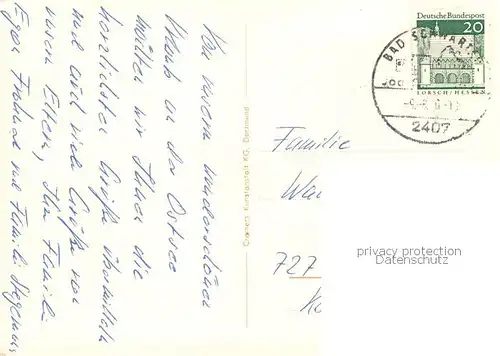 Von unserem wunderschönen
Urlaub an der Ostsee
möchten wir Ihnen die
herzlichsten Grüße übermitteln
und auch viele Grüße von
unseren Eltern, Ihre Familie
Egon Frahnd und Familie
Cramers Kunstanstalt KG, Dortmund
Deutsche Bundespost
20
LORSCH/HESSEN
BAD SCHWARTAU
2407
Familie
727
privacy protection
Datenschutz